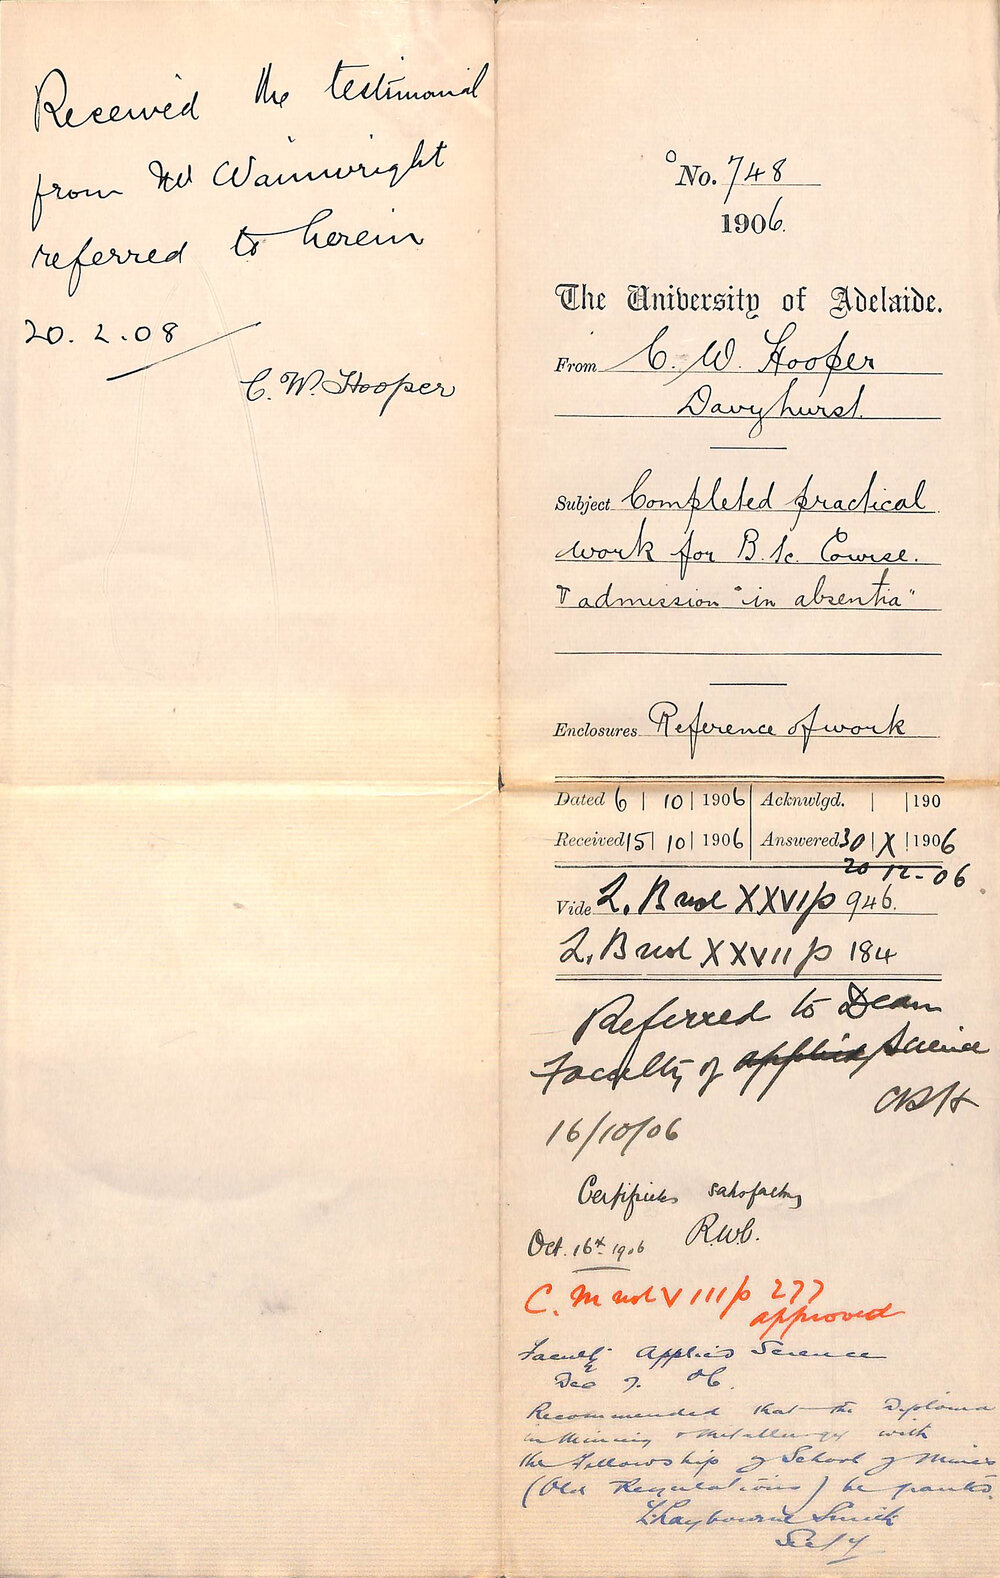 Received the testimonial
from Mr Wainwright
referred to herein
20. 2. 08
C. W. Hooper
No. 748
1906.
The University of Adelaide.
From C. W. Hooper
Davyhurst.
Subject Completed practical
work for B. Sc. Course.
& admission "in absentia"
Enclosures Reference of work
Dated 6 | 10 | 1906 | Acknwlgd. | | 190
Received 15 | 10 | 1906 | Answered 30 | X | 1906
20 12 - 06
Vide L. B vol XXVI p 946.
L. B vol XXVII p 184
Referred to Dean
Faculty of applied Science
16/10/06
Certificates satisfactory
Oct. 16th 1906 R.W.C.
C. M vol VIII p 277
approved
Faculty Applied Science
Dec 7. 06.
Recommended that the Diploma
in Mining & Metallurgy with
the Fellowship of School of Mines
(Old Regulations) be granted.
L Laybourne Smith
Secy